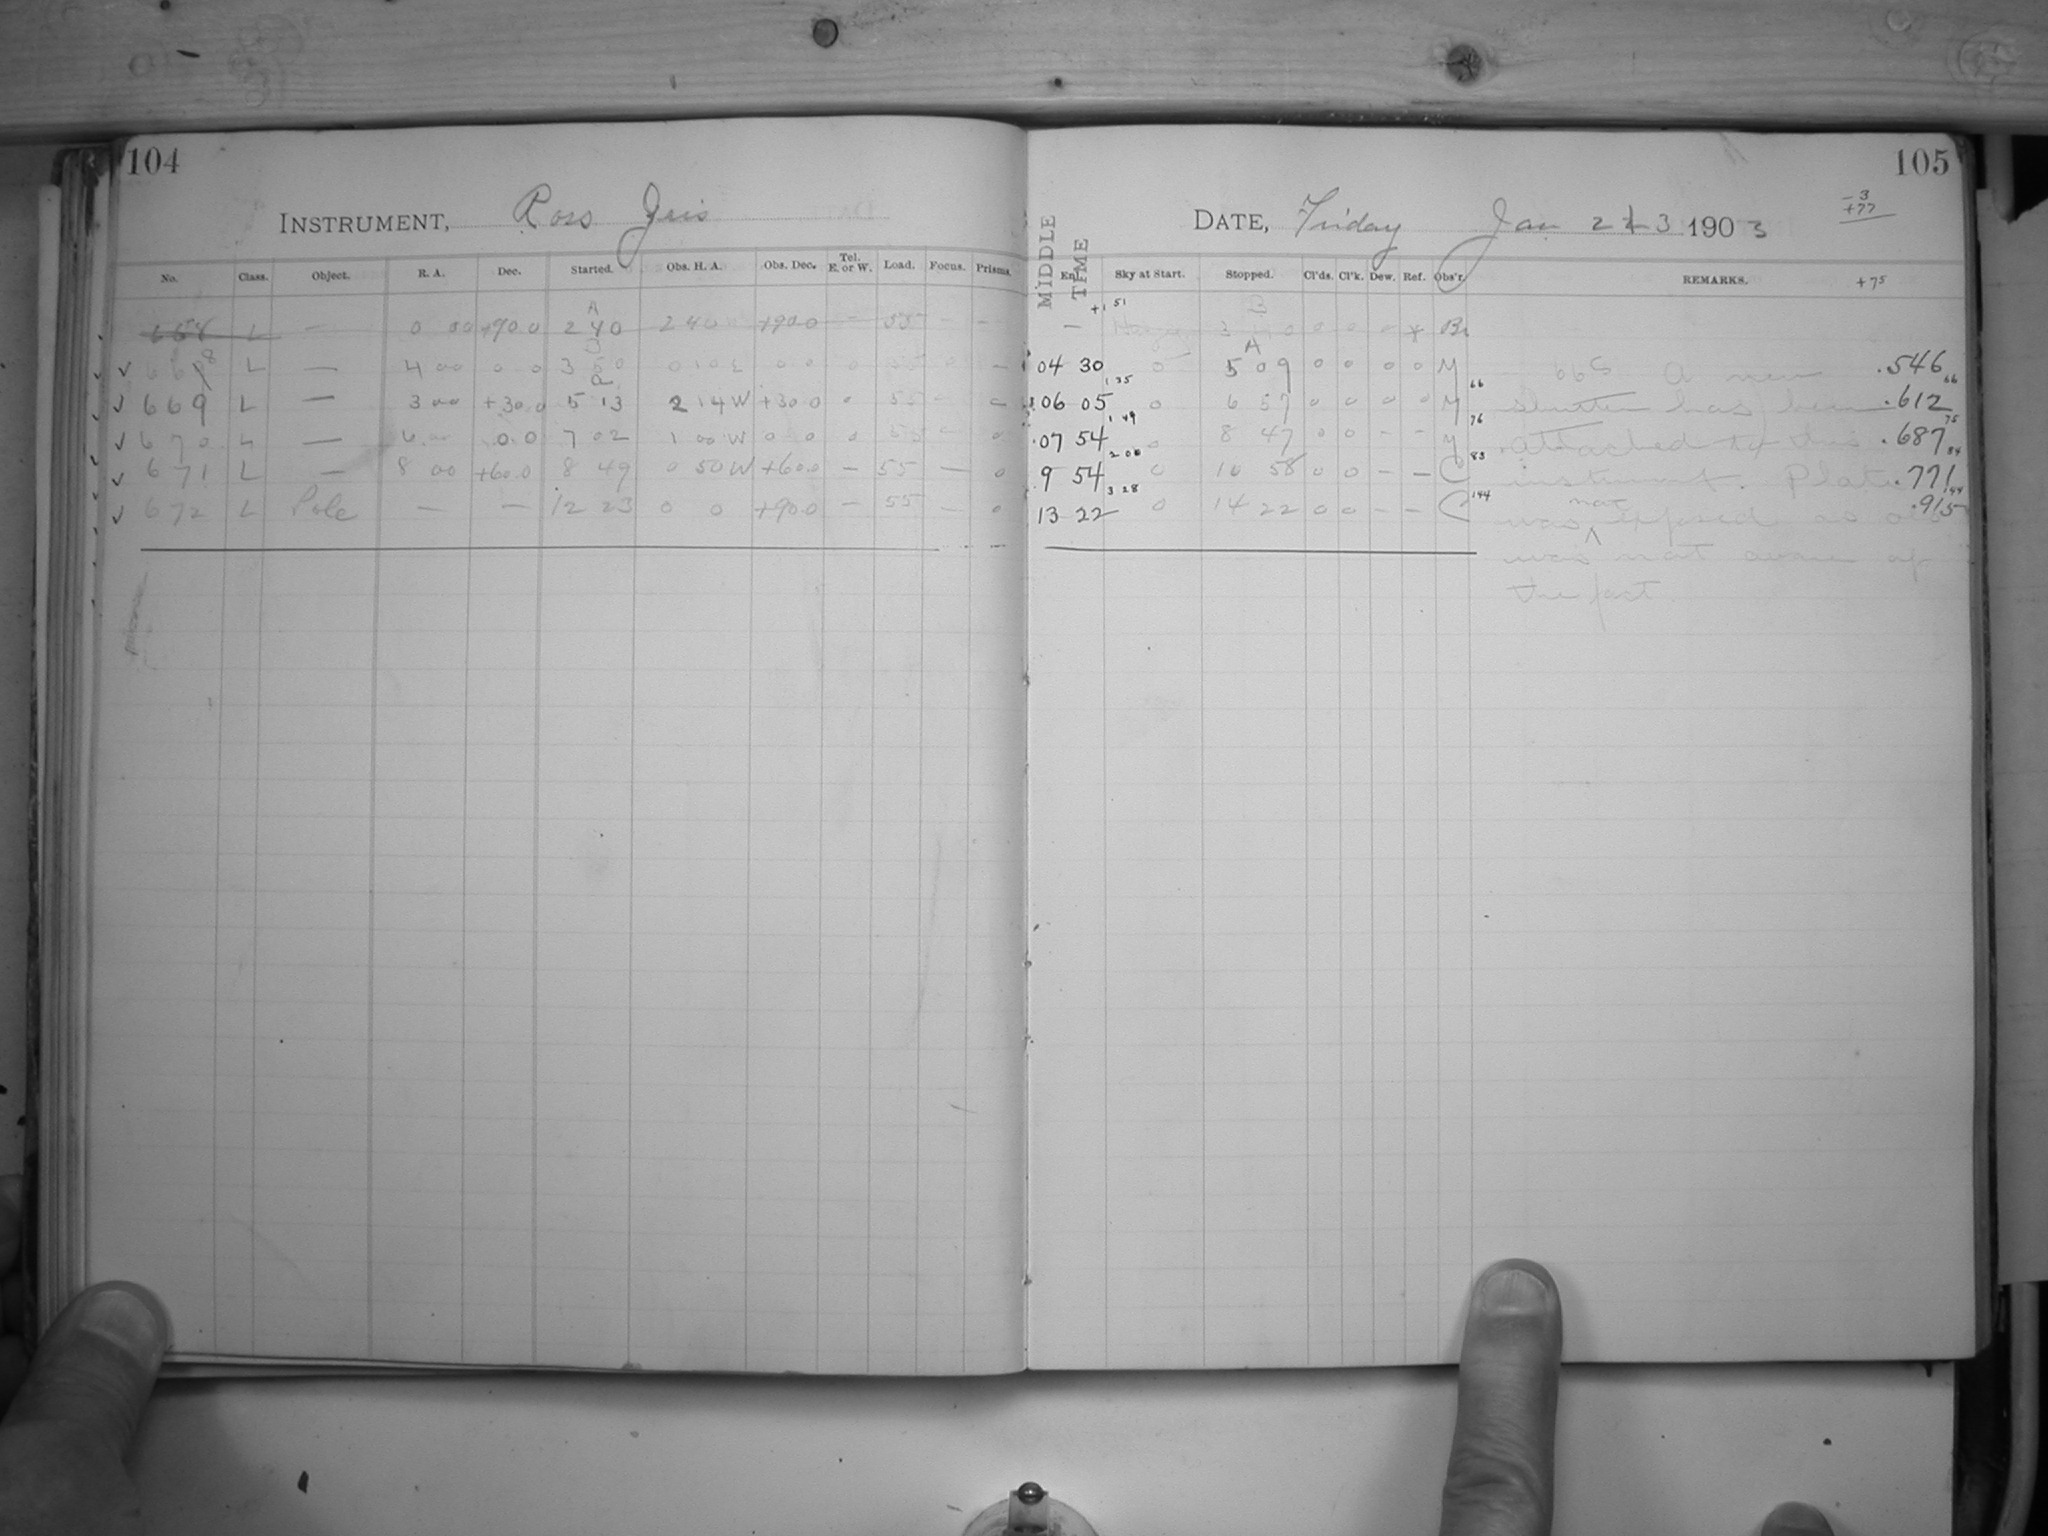 104
INSTRUMENT, Ross Iris
No. Class. Object. R. A. Dec. Started. Obs. H. A. Obs. Dec. Tel. E. or W. Load. Focus. Prisms.
658 L — 0 00 +90 0 2 40 2 40 +90 0 — 55 — —
668 L — 4 00 0 0 3 50 0 10 E 0 0 0 55 0 —
✓ 669 L — 3 00 +30 0 5 13 2 14 W +30 0 0 55 — —
✓ 670 L — 6 00 0 0 7 02 1 00 W 0 0 0 55 — 0
✓ 671 L — 8 00 +60 0 8 49 0 50 W +60 0 — 55 — 0
✓ 672 L Pole — — 12 23 0 0 +90 0 — 55 — 0
105
DATE, Friday Jan 23 1903
-3
+77
MIDDLE TIME
Sky at Start. Stopped. Cl'ds. Cl'k. Dew. Ref. Obs'r. REMARKS. +75
+1 51
— Hazy 3 40 0 0 0 — * Br
04 30 0 5 09 0 0 0 0 M 668 A new .546
1 35 66 66
06 05 0 6 57 0 0 0 0 M shutter has been .612
1 49 76 75
07 54 0 8 47 0 0 — — M attached to this .687
2 00 83 84
9 54 0 10 58 0 0 — — C instrument. Plate .771
3 28 144 144
13 22 0 14 22 0 0 — — C was not exposed as obs .915
was not aware of
the fact